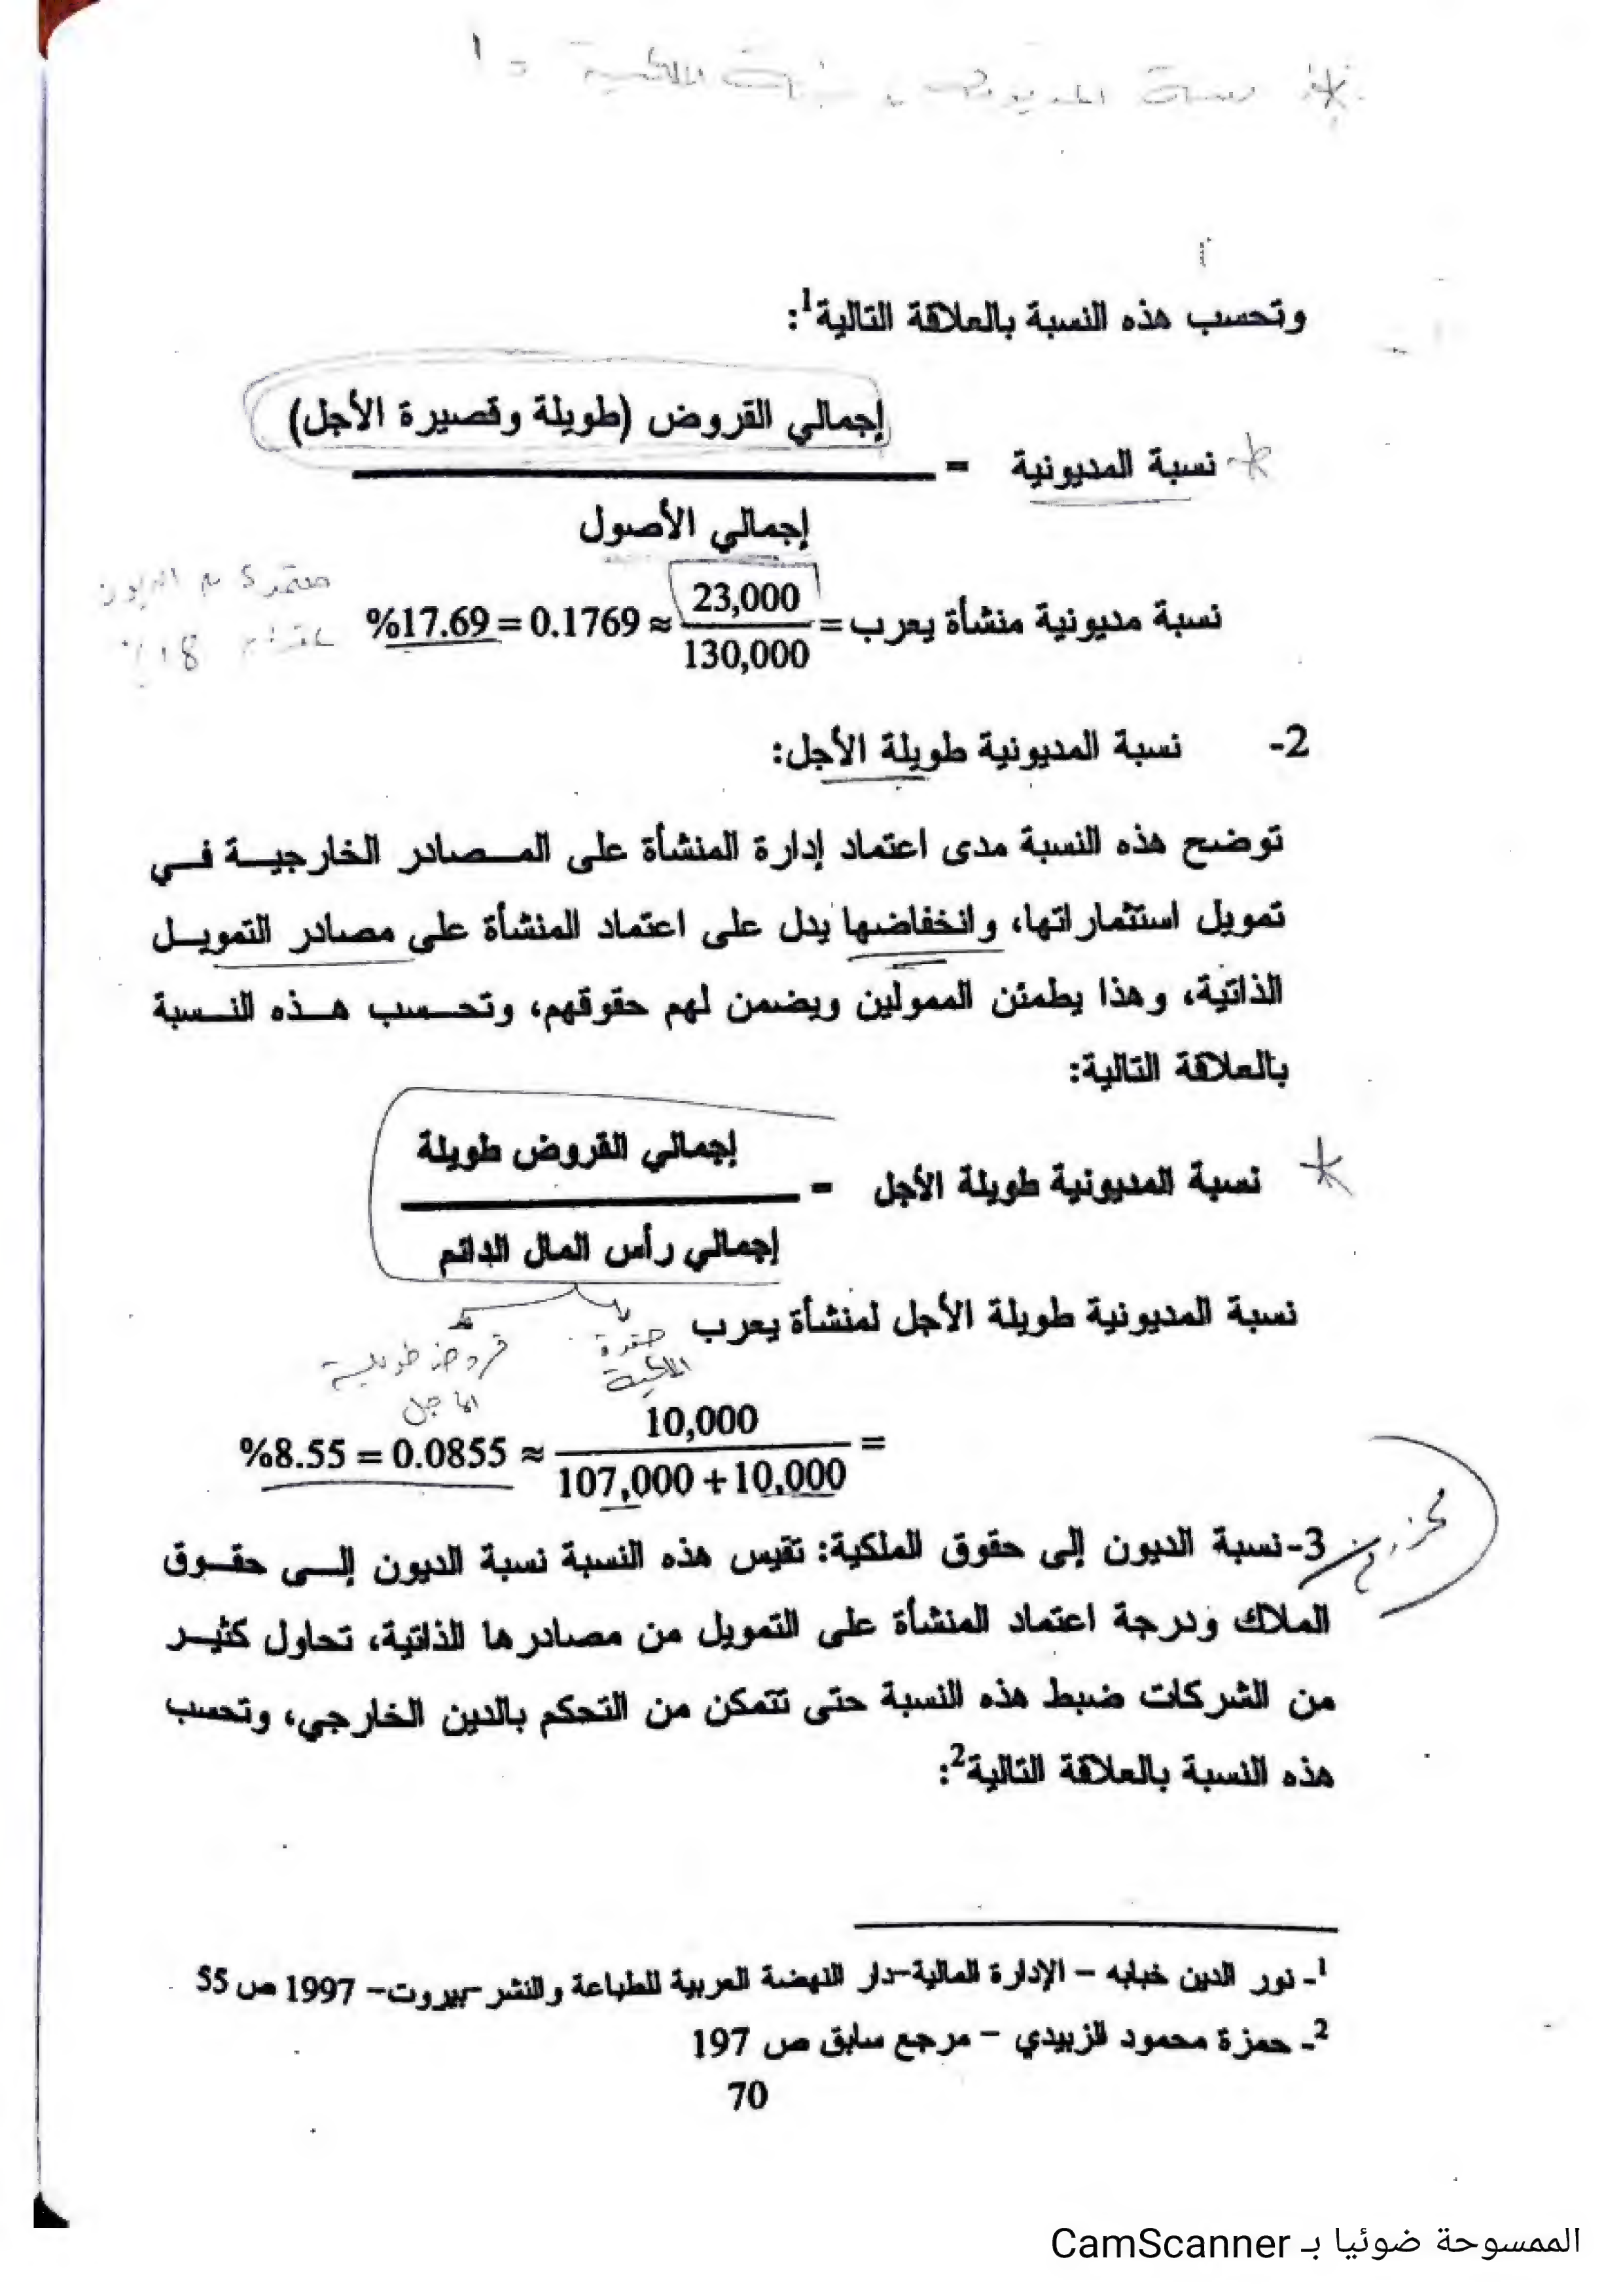 * نسبة المديونية + نسبة الملكية = 1
وتحسب هذه النسبة بالعلاقة التالية1:
إجمالي القروض (طويلة وقصيرة الأجل)
* نسبة المديونية =
إجمالي الأصول
نسبة مديونية منشأة يعرب = 23,000 / 130,000 ≈ 0.1769 = 17.69%
18%
2- نسبة المديونية طويلة الأجل:
توضح هذه النسبة مدى اعتماد إدارة المنشأة على المصادر الخارجية في
تمويل استثماراتها، وانخفاضها يدل على اعتماد المنشأة على مصادر التمويل
الذاتية، وهذا يطمئن الممولين ويضمن لهم حقوقهم، وتحسب هذه النسبة
بالعلاقة التالية:
إجمالي القروض طويلة
* نسبة المديونية طويلة الأجل =
إجمالي رأس المال الدائم
نسبة المديونية طويلة الأجل لمنشأة يعرب
الملكية
قروض طويلة
الأجل
= 10,000 / 107,000 + 10,000 ≈ 0.0855 = 8.55%
3-نسبة الديون إلى حقوق الملكية: تقيس هذه النسبة نسبة الديون إلى حقوق
الملاك ودرجة اعتماد المنشأة على التمويل من مصادرها الذاتية، تحاول كثير
من الشركات ضبط هذه النسبة حتى تتمكن من التحكم بالدين الخارجي، وتحسب
هذه النسبة بالعلاقة التالية2:
1- نور الدين خبابه – الإدارة المالية–دار النهضة العربية للطباعة والنشر –بيروت– 1997 ص 55
2- حمزة محمود الزبيدي – مرجع سابق ص 197
70
الممسوحة ضوئيا بـ CamScanner